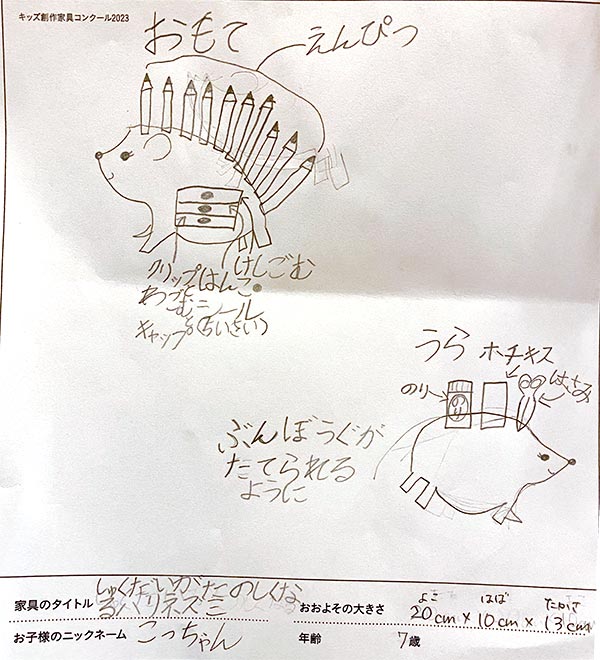 キッズ創作家具コンクール2023
おもて
えんぴつ
クリップ
はんこ
けしごむ
シール
キャップ(ちいさい)
うら
ホチキス
のり
はさみ
のり
ぶんぼうぐが
たてられる
ように
家具のタイトル しゅくだいがたのしくな
るハリネズミ
おおよその大きさ よこ 20cm × はば 10cm × たかさ 13cm
お子様のニックネーム こっちゃん
年齢 7歳